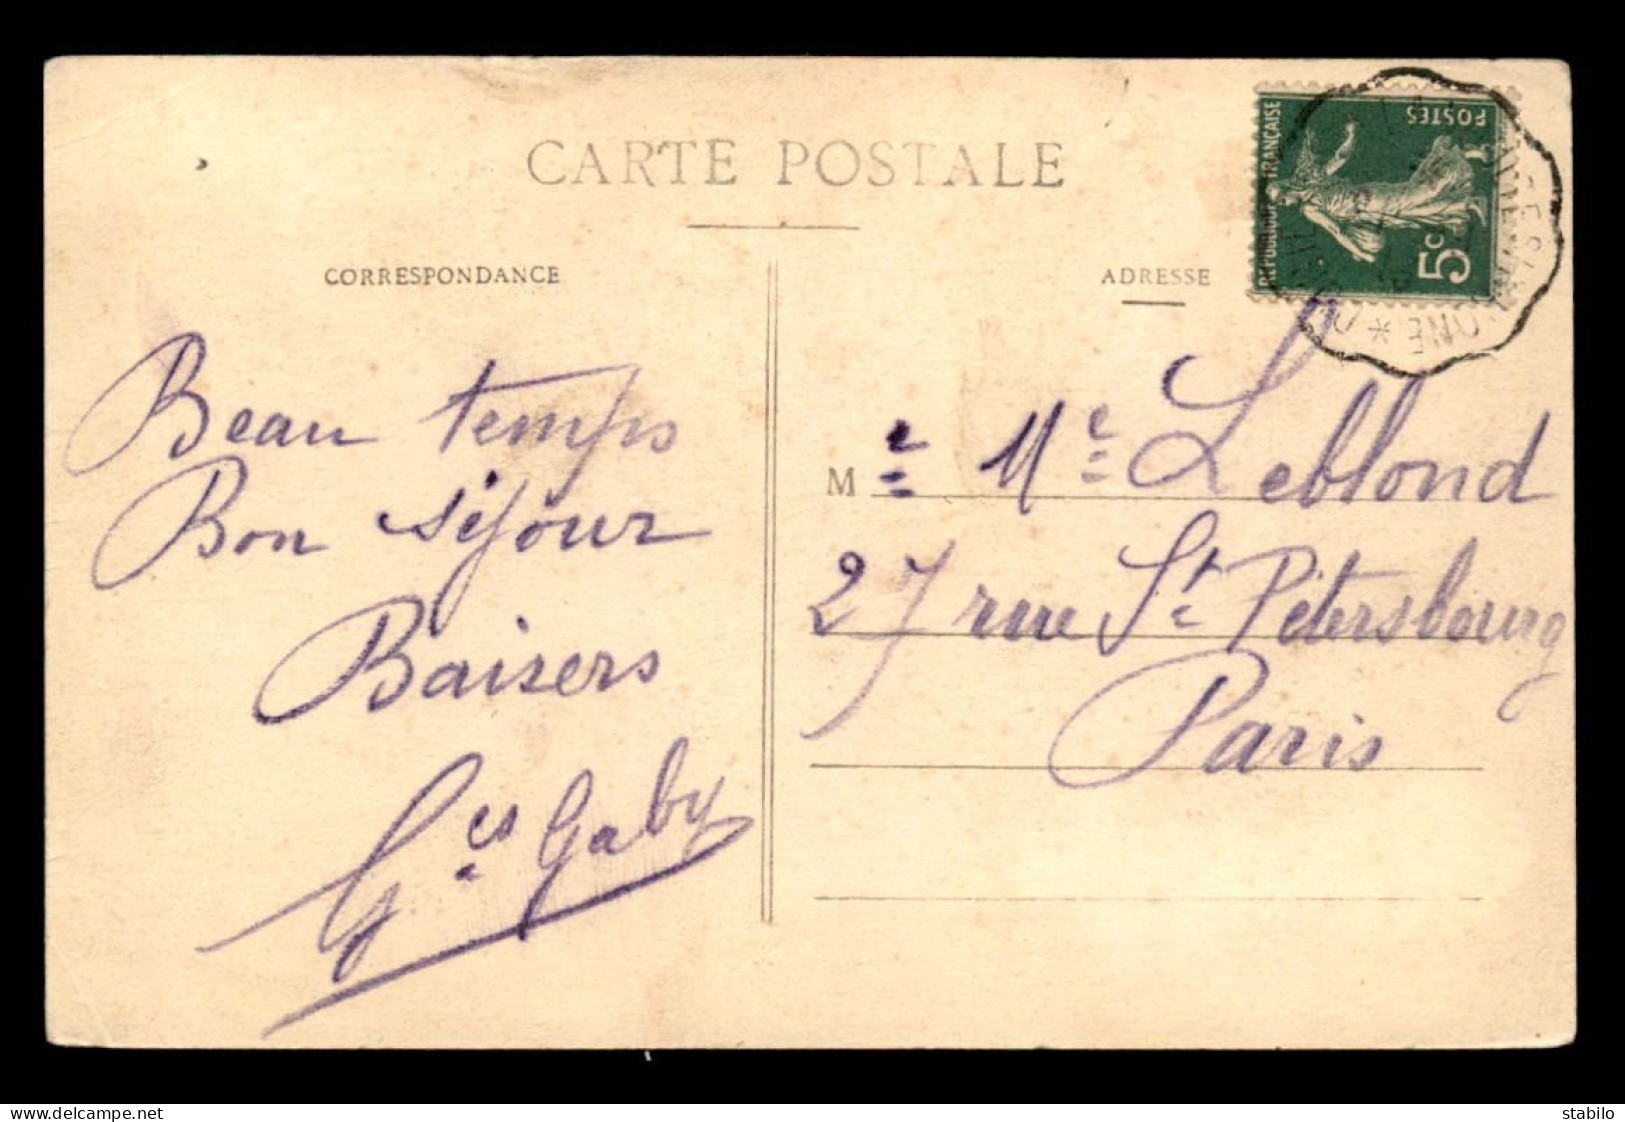 CARTE POSTALE
CORRESPONDANCE
Beau temps
Bon séjour
Baisers
Gaby
ADRESSE
M e Me Leblond
27 rue St Pétersbourg
Paris
REPUBLIQUE FRANÇAISE
POSTES
5c
www.delcampe.net
stabilo